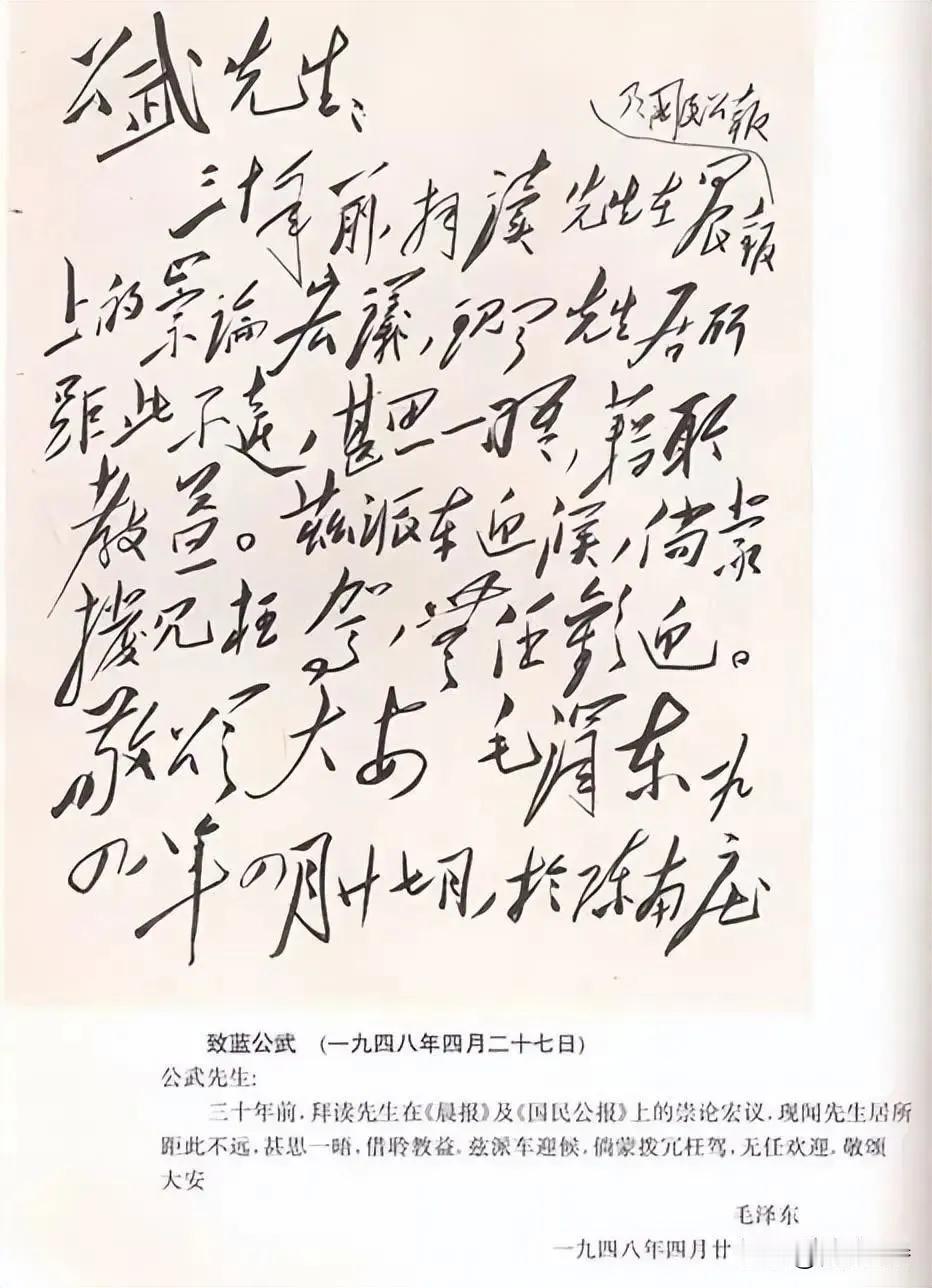 公武先生、
及國民公報
三十年前,拜读先生在晨報
上的崇論宏議,现闻先生居所
距此不远,甚思一晤,藉聆
教益。兹派车迎候,倘蒙
撥冗枉驾,無任歡迎。
敬頌 大安 毛澤东 一九
四八年四月廿七日,於陈南庄
致蓝公武 (一九四八年四月二十七日)
公武先生:
三十年前,拜读先生在《晨报》及《国民公报》上的崇论宏议,现闻先生居所
距此不远,甚思一晤,借聆教益。兹派车迎候,倘蒙拨冗枉驾,无任欢迎。敬颂
大安
毛泽东
一九四八年四月廿